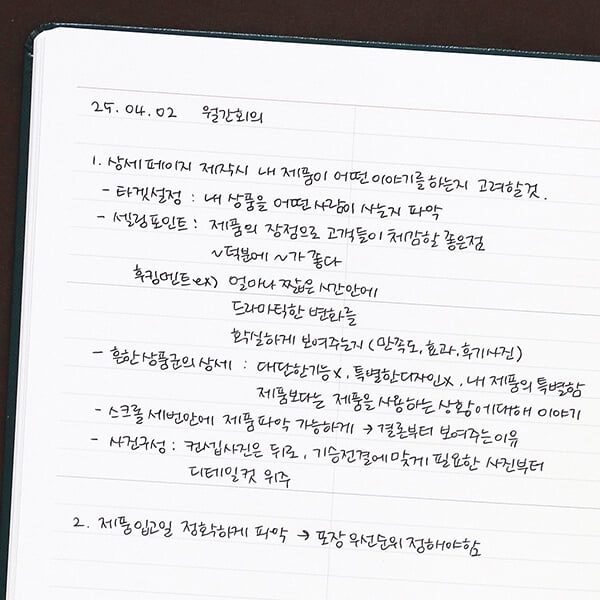 25.04.02 월간회의
1. 상세페이지 제작시 내 제품이 어떤 이야기를 하는지 고려할것.
- 타겟설정 : 내 상품을 어떤 사람이 사는지 파악
- 셀링포인트 : 제품의 장점으로 고객들이 체감할 좋은점
~덕분에 ~가 좋다
후킹멘트ex) 얼마나 짧은 시간안에
드라마틱한 변화를
확실하게 보여주는지 (만족도, 효과, 후기사진)
- 흔한상품군의 상세 : 대단한기능x, 특별한디자인x, 내 제품의 특별함
제품보다는 제품을 사용하는 상황에대해 이야기
- 스크롤 세번안에 제품파악 가능하게 → 결론부터 보여주는이유
- 사진구성 : 컨셉사진은 뒤로, 기승전결에맞게 필요한 사진부터
디테일컷 위주
2. 제품입고일 정확하게 파악 → 포장 우선순위 정해야함